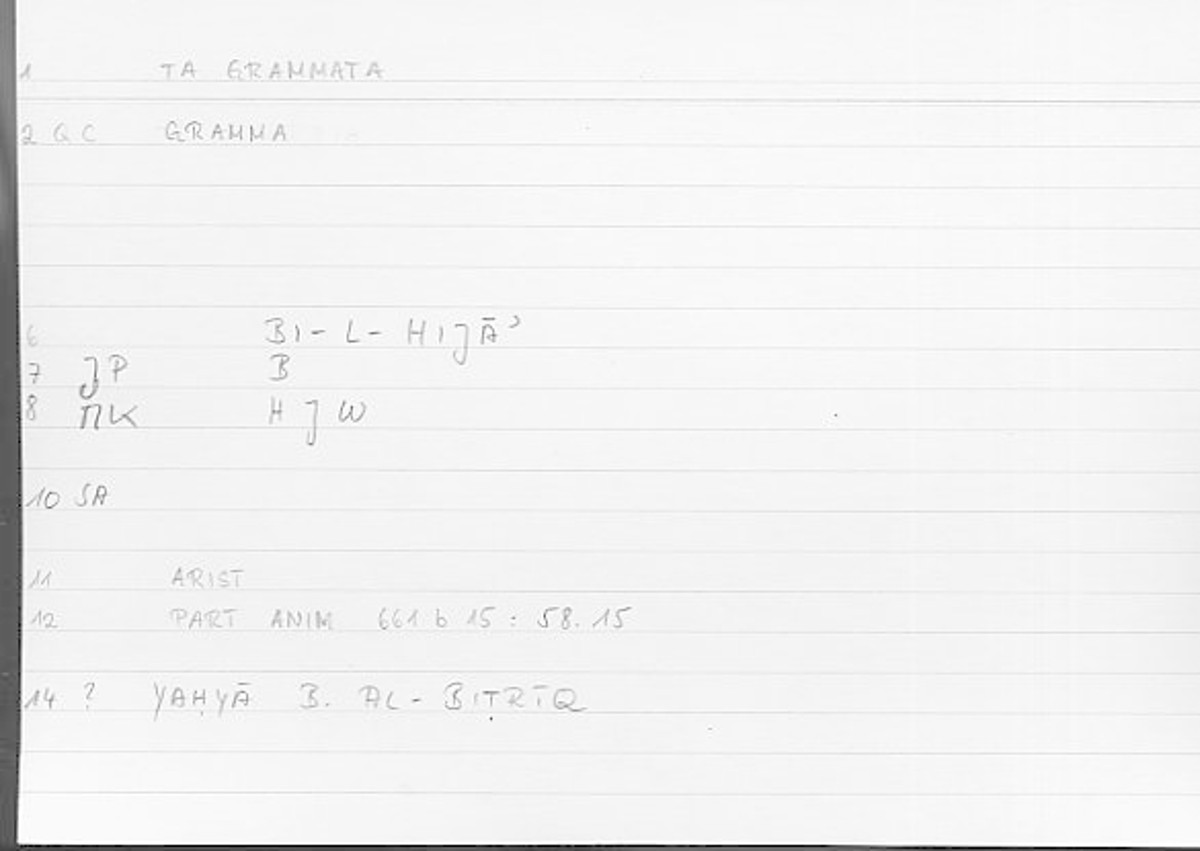 1 TA GRAMMATA
2 GC GRAMMA
6 BI-L-HIJĀʾ
7 JP B
8 ПK HJW
10 SA
11 ARIST
12 PART ANIM 661 b 15 : 58.15
14 ? YAḤYĀ B. AL-BIṬRĪQ